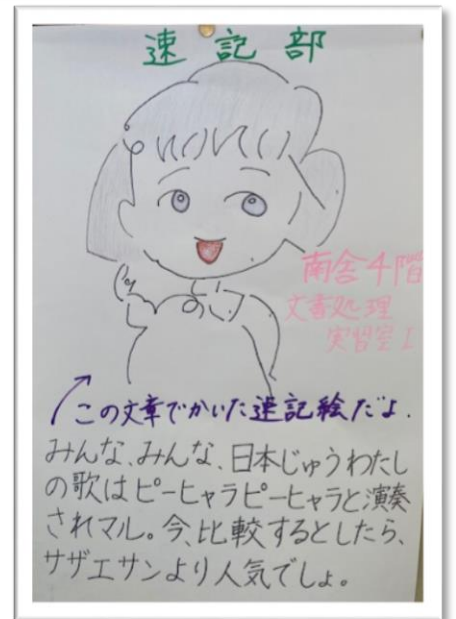 速記部
南舎4階
文書処理
実習室I
この文章でかいた速記絵だよ.
みんな、みんな、日本じゅうわたし
の歌はピーヒャラピーヒャラと演奏
されマル。今、比較するとしたら、
サザエサンより人気でしょ。